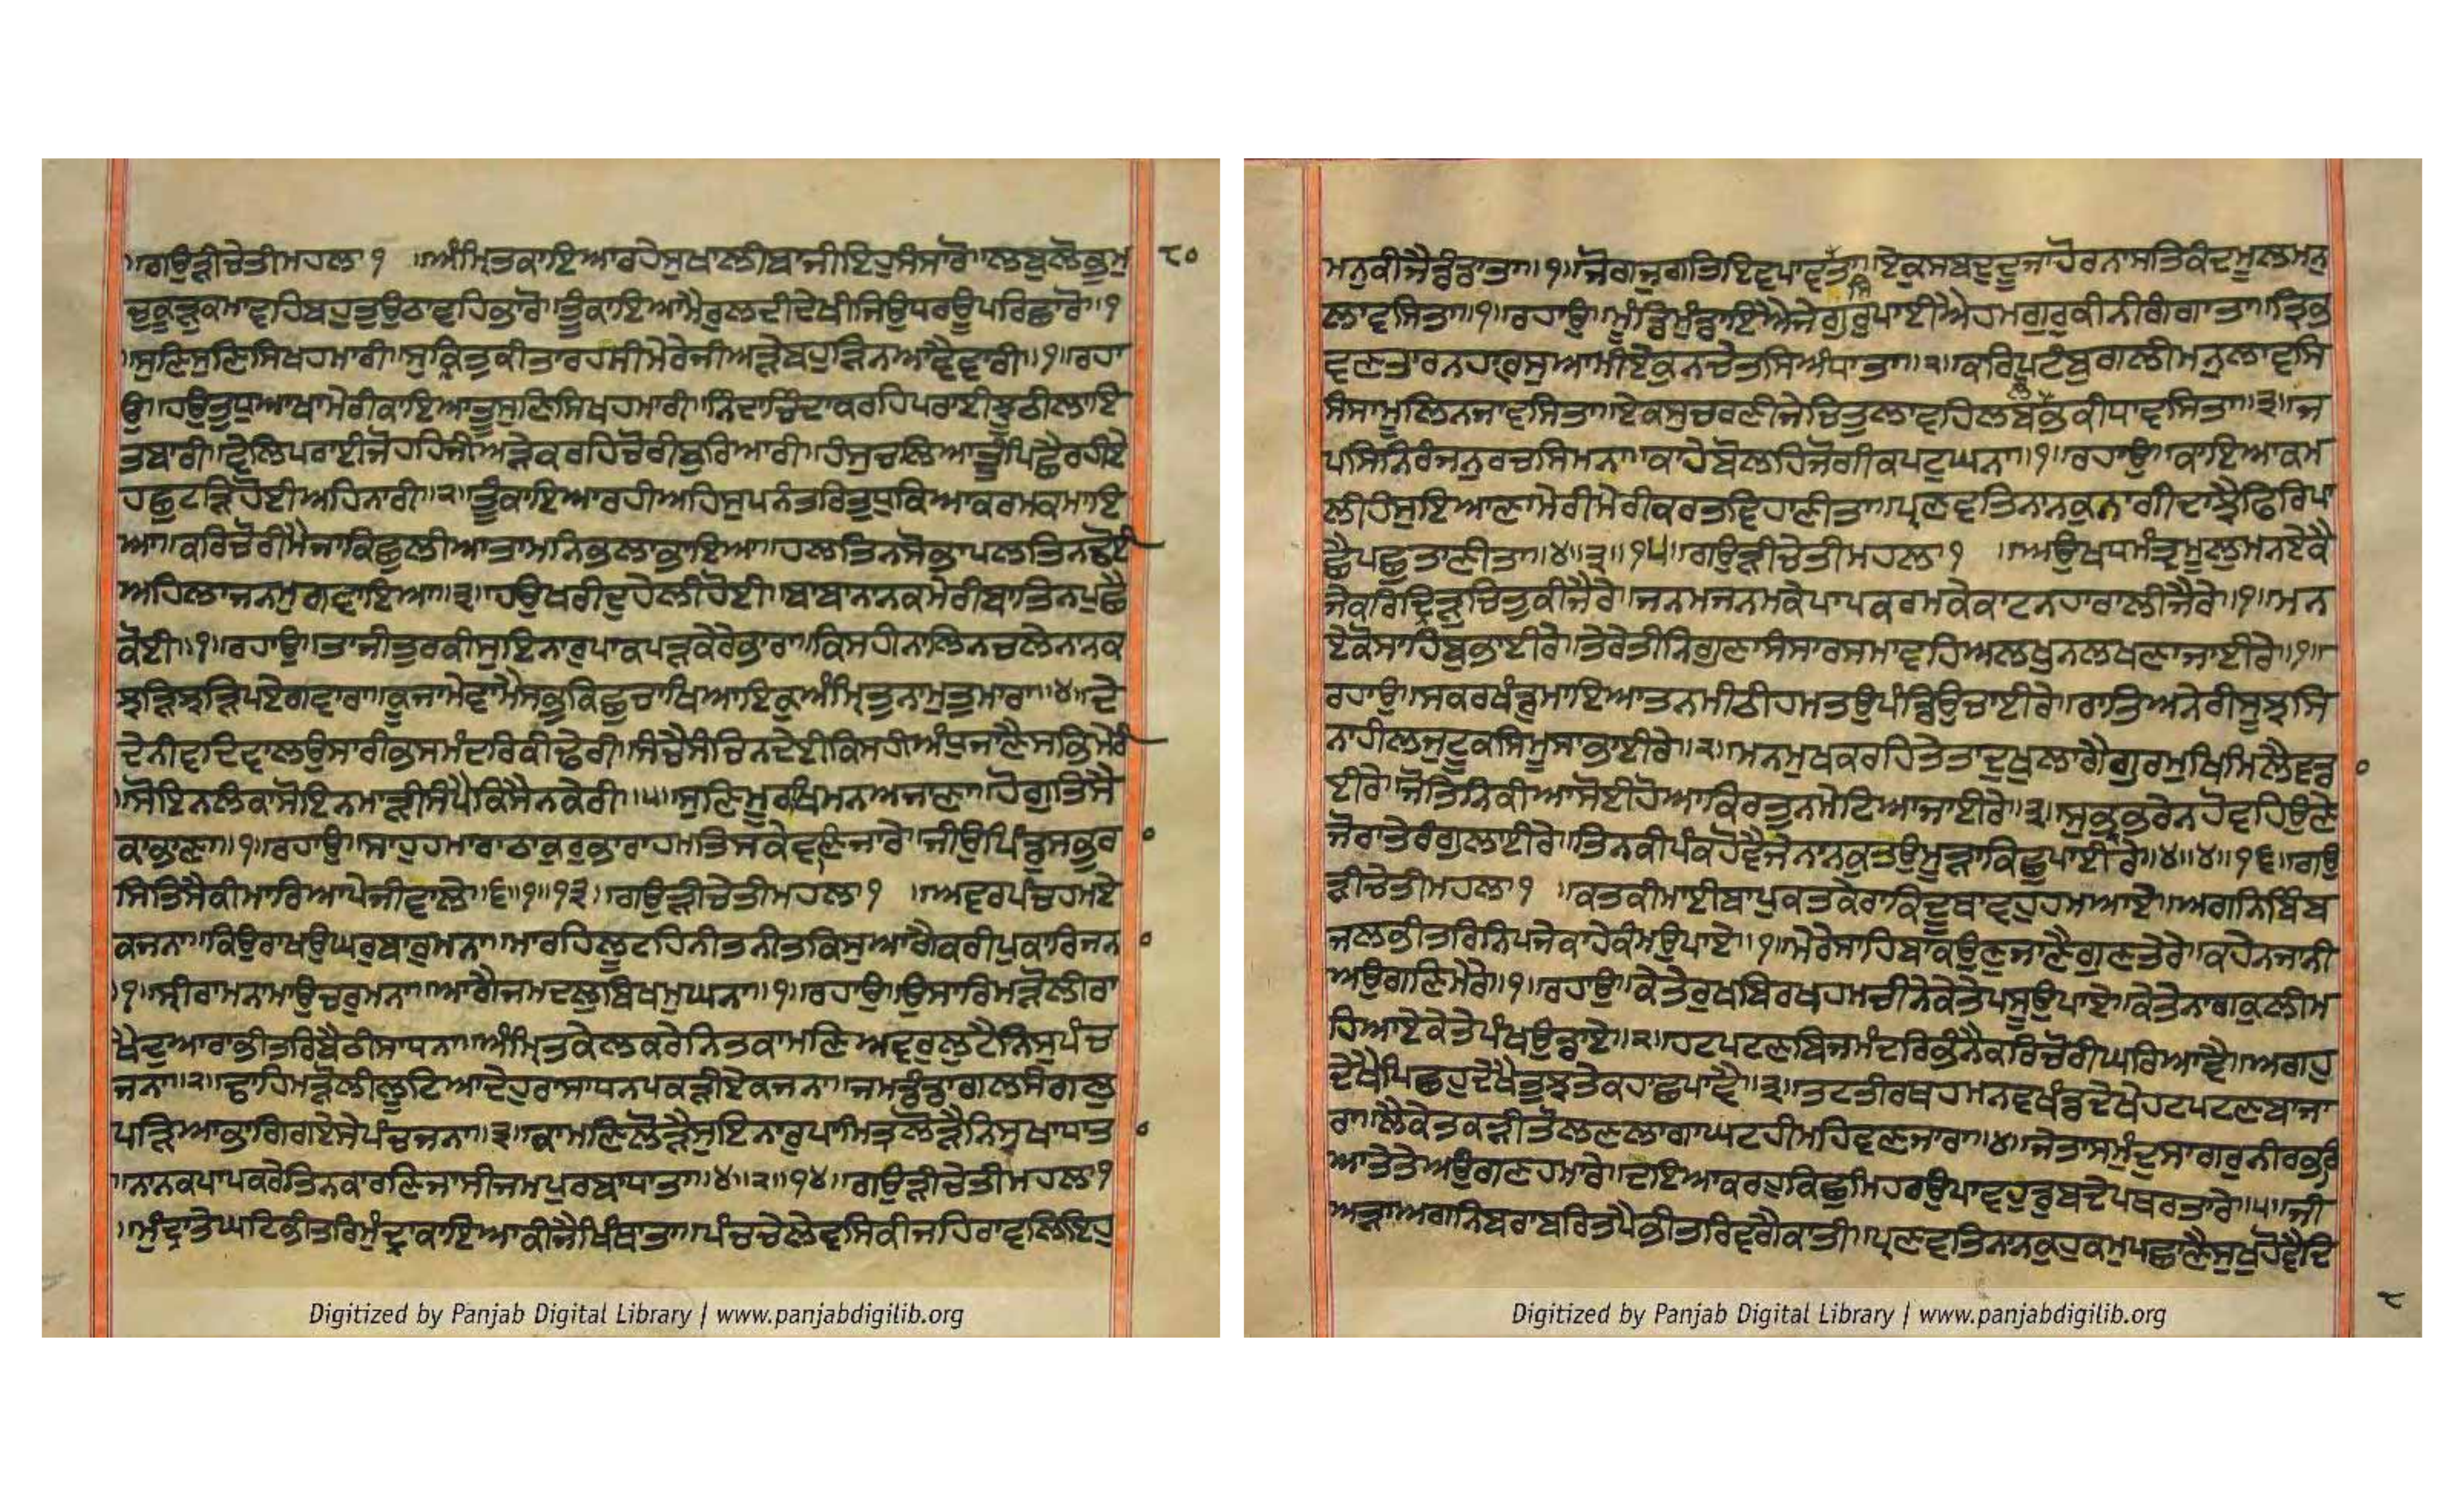 ॥ਗਉੜੀਚੇਤੀਮਹਲਾ੧ ॥ਅੰਮ੍ਰਿਤਕਾਇਆਰਹੈਸੁਖਾਲੀਬਾਜੀਇਹੁਸੰਸਾਰੋ॥ਲਬੁਲੋਭੁਮੁ ੮੦
ਚੁਕੂੜੁਕਮਾਵਹਿਬਹੁਤੁਉਠਾਵਹਿਭਾਰੋ॥ਤੂੰਕਾਇਆਮੈਰੁਲਦੀਦੇਖੀਜਿਉਧਰਉਪਰਿਛਾਰੋ॥੧
॥ਸੁਣਿਸੁਣਿਸਿਖਹਮਾਰੀ॥ਸੁਕ੍ਰਿਤੁਕੀਤਾਰਹਸੀਮੇਰੇਜੀਅੜੇਬਹੁੜਿਨਆਵੈਵਾਰੀ॥੧॥ਰਹਾ
ਉ॥ਹਉਤੁਧੁਆਖਾਮੇਰੀਕਾਇਆਤੂਸੁਣਿਸਿਖਹਮਾਰੀ॥ਨਿੰਦਾਚਿੰਦਾਕਰਹਿਪਰਾਈਝੂਠੀਲਾਇ
ਤਬਾਰੀ॥ਵੇਲਿਪਰਾਈਜੋਹਹਿਜੀਅੜੇਕਰਹਿਚੋਰੀਬੁਰਿਆਰੀ॥ਹੰਸੁਚਲਿਆਤੂੰਪਿਛੈਰਹੀਏ
ਹਛੁਟੜਿਹੋਈਅਹਿਨਾਰੀ॥੨॥ਤੂੰਕਾਇਆਰਹੀਅਹਿਸੁਪਨੰਤਰਿਤੁਧੁਕਿਆਕਰਮਕਮਾਇ
ਆ॥ਕਰਿਚੋਰੀਮੈਜਾਕਿਛੁਲੀਆਤਾਮਨਿਭਲਾਭਾਇਆ॥ਹਲਤਿਨਸੋਭਾਪਲਤਿਨਢੋਈ
ਅਹਿਲਾਜਨਮੁਗਵਾਇਆ॥੩॥ਹਉਖਰੀਦੁਹੇਲੀਹੋਈ॥ਬਾਬਾਨਨਕਮੇਰੀਬਾਤਿਨਪੁਛੈ
ਕੋਈ॥੧॥ਰਹਾਉ॥ਤਾਜੀਤੁਰਕੀਸੁਇਨਾਰੁਪਾਕਪੜਕੇਰੇਭਾਰਾ॥ਕਿਸਹੀਨਾਲਿਨਚਲੇਨਾਨਕ
ਝੜਿਝੜਿਪਏਗਵਾਰਾ॥ਕੂਜਾਮੇਵਾਮੈਸਭਕਿਛੁਚਾਖਿਆਇਕੁਅੰਮ੍ਰਿਤੁਨਾਮੁਤੁਮਾਰਾ॥੪॥ਦੇ
ਦੇਨੀਵਦਿਵਾਲਉਸਾਰੀਭਸਮੰਦਰਿਕੀਢੇਰੀ॥ਸੰਚੈਸੰਚਿਨਦੇਈਕਿਸਹੀਅੰਧੁਜਾਣੈਸਭਿਮੇਰੀ
॥ਸੋਇਨਲੰਕਾਸੋਇਨਮਾੜੀਸੰਪੈਕਿਸੈਨਕੇਰੀ॥੫॥ਸੁਣਿਮੂਰਖਮਨਅਜਾਣਾ॥ਹੋਗੁਤਿਸੈ
ਕਾਭਾਣਾ॥੧॥ਰਹਾਉ॥ਸਾਹੁਹਮਾਰਾਠਾਕੁਰੁਭਾਰਾਹਮਤਿਸਕੇਵਣਜਾਰੇ॥ਜੀਉਪਿੰਡੁਸਭਰ
ਸਿਤਿਸੈਕੀਮਾਰਿਆਪੇਜੀਵਾਲੇ॥੬॥੧॥੧੩॥ਗਉੜੀਚੇਤੀਮਹਲਾ੧ ॥ਅਵਰਪੰਚਹਮਏ
ਕਜਨਾ॥ਕਿਉਰਾਖਉਘਰਬਾਰੁਮਨਾ॥ਮਾਰਹਿਲੂਟਹਿਨੀਤਨੀਤਕਿਸੁਆਗੈਕਰੀਪੁਕਾਰਿਜਨ
॥੧॥ਸ੍ਰੀਰਾਮਨਾਮਾਉਚਰੁਮਨਾ॥ਆਗੈਜਮਦਲੁਬਿਖਮੁਘਨਾ॥੧॥ਰਹਾਉ॥ਉਸਾਰਿਮੜੋਲੀਰਾ
ਖੈਦੁਆਰਾਭੀਤਰਿਬੈਠੀਸਾਧਨਾ॥ਅੰਮ੍ਰਿਤਕੇਲਕਰੇਨਿਤਕਾਮਣਿਅਵਰੁਲੁਟੈਨਿਸੁਪੰਚ
ਜਨਾ॥੨॥ਢਾਹਿਮੜੋਲੀਲੂਟਿਆਦੇਹੁਰਾਸਾਧਨਪਕੜੀਏਕਜਨਾ॥ਜਮਡੰਡਾਗਲਸੰਗਲੁ
ਪੜਿਆਭਾਗਿਗਏਸੇਪੰਚਜਨਾ॥੩॥ਕਾਮਣਿਲੋੜੈਸੁਇਨਾਰੁਪਾਮਿਤ੍ਰਲੋੜੈਨਿਸੁਖਾਧਾਤ
॥ਨਾਨਕਪਾਪਕਰੇਤਿਨਕਾਰਣਿਜਾਸੀਜਮਪੁਰਬਾਧਾਤਾ॥੪॥੨॥੧੪॥ਗਉੜੀਚੇਤੀਮਹਲਾ੧
॥ਮੁੰਦ੍ਰਾਤੇਘਟਿਭੀਤਰਿਮੁੰਦ੍ਰਾਕਾਇਆਕੀਜੈਖਿੰਥਾਤਾ॥ਪੰਚਚੇਲੇਵਸਿਕੀਜਹਿਰਾਵਲਿਇਹੁ
ਮਨੁਕੀਜੈਡੰਡਾਤਾ॥੧॥ਜੋਗਜੁਗਤਿਇਵਪਾਵਤਾ॥ਇਕੁਸਬਦੁਦੂਜਾਹੋਰਨਾਸਤਿਕੰਦਮੂਲਮਨੁ
ਲਾਵਸਿਤਾ॥੧॥ਰਹਾਉ॥ਮੁੰਡਿਮੁੰਡਾਇਐਜੇਗੁਰੁਪਾਈਐਹਮਗੁਰੁਕੀਨੀਗੰਗਾਤਾ॥ਤ੍ਰਿਭ
ਵਣਤਾਰਨਹਾਰੁਸੁਆਮੀਏਕੁਨਚੇਤਸਿਅੰਧਾਤਾ॥੨॥ਕਰਿਪਟੰਬੁਗਲੀਮਨੁਲਾਵਸਿ
ਸੰਸਾਮੂਲਿਨਜਾਵਸਿਤਾ॥ਏਕਸੁਚਰਣੀਜੇਚਿਤੁਲਾਵਹਿਲਬਿਲੋਭਿਕੀਧਾਵਸਿਤਾ॥੩॥ਜ
ਪਸਿਨਿਰੰਜਨੁਰਚਸਿਮਨਾ॥ਕਾਹੇਬੋਲਹਿਜੋਗੀਕਪਟੁਘਨਾ॥੧॥ਰਹਾਉ॥ਕਾਇਆਕਮ
ਲੀਹੰਸੁਇਆਣਾਮੇਰੀਮੇਰੀਕਰਤਵਿਹਾਣੀਤਾ॥ਪ੍ਰਣਵਤਿਨਾਨਕੁਨਾਗੀਦਾਝੈਫਿਰਿਪਾ
ਛੈਪਛੁਤਾਣੀਤਾ॥੪॥੩॥੧੫॥ਗਉੜੀਚੇਤੀਮਹਲਾ੧ ॥ਅਉਖਧਮੰਤ੍ਰਮੂਲੁਮਨਏਕੈ
ਜੇਕਰਿਦ੍ਰਿੜੁਚਿਤੁਕੀਜੈਰੇ॥ਜਨਮਜਨਮਕੇਪਾਪਕਰਮਕੇਕਾਟਨਹਾਰਾਲੀਜੈਰੇ॥੧॥ਮਨ
ਏਕੋਸਾਹਿਬੁਭਾਈਰੇ॥ਤੇਰੇਤੀਨਿਗੁਣਾਸੰਸਾਰਸਮਾਵਹਿਅਲਖੁਨਲਖਣਾਜਾਈਰੇ॥੧॥
ਰਹਾਉ॥ਸਕਰਖੰਡੁਮਾਇਆਤਨਮੀਠੀਹਮਤਉਪੰਡਿਉਚਾਈਰੇ॥ਰਾਤਿਅਨੇਰੀਸੂਝਸਿ
ਨਾਹੀਲਜੁਟੂਕਸਿਮੂਸਾਭਾਈਰੇ॥੨॥ਮਨਮੁਖਕਰਹਿਤੇਤਾਦੁਖੁਲਾਗੈਗੁਰਮੁਖਿਮਿਲੈਵਡ
ਈਰੇ॥ਜੋਤਿਨਿਕੀਆਸੋਈਹੋਆਕਿਰਤੁਨਮੇਟਿਆਜਾਈਰੇ॥੩॥ਸੁਭਰਭਰੇਨਹੋਵਹਿਊਣੇ
ਜੋਰਾਤੇਰੰਗੁਲਾਈਰੇ॥ਤਿਨਕੀਪੰਕਹੋਵੈਜੇਨਾਨਕੁਤਉਮੂੜਾਕਿਛੁਪਾਈਰੇ॥੪॥੪॥੧੬॥ਗਉ
ੜੀਚੇਤੀਮਹਲਾ੧ ॥ਕਤਕੀਮਾਈਬਾਪੁਕਤਕੇਰਾਕਿਦੂਥਾਵਹੁਹਮਆਏ॥ਅਗਨਿਬਿੰਬ
ਜਲਭੀਤਰਿਨਿਪਜੇਕਾਹੇਕੰਮਉਪਾਏ॥੧॥ਮੇਰੇਸਾਹਿਬਾਕਉਣੁਜਾਣੈਗੁਣਤੇਰੇ॥ਕਹੇਨਜਾਨੀ
ਅਉਗਣਿਮੇਰੇ॥੧॥ਰਹਾਉ॥ਕੇਤੇਰੁਖਬਿਰਖਹਮਚੀਨੇਕੇਤੇਪਸੂਉਪਾਏ॥ਕੇਤੇਨਾਗਕੁਲੀਮ
ਹਿਆਏਕੇਤੇਪੰਖਉਡਾਏ॥੨॥ਹਟਪਟਣਬਿਜਮੰਦਰਿਭੰਨੈਕਰਿਚੋਰੀਘਰਿਆਵੈ॥ਅਗਹੁ
ਦੇਖੈਪਿਛਹੁਦੇਖੈਤੁਝਤੇਕਹਾਛਪਾਵੈ॥੩॥ਤਟਤੀਰਥਹਮਨਵਖੰਡਦੇਖੇਹਟਪਟਣਬਾਜਾ
ਰਾ॥ਲੈਕੇਤਕੜੀਤੋਲਣਲਾਗਾਘਟਹੀਮਹਿਵਣਜਾਰਾ॥੪॥ਜੇਤਾਸਮੁੰਦੁਸਾਗਰੁਨੀਰਭਰਿ
ਆਤੇਤੇਅਉਗਣਹਮਾਰੇ॥ਦਇਆਕਰਹੁਕਿਛੁਮਿਹਰਉਪਾਵਹੁਡੁਬਦੇਪਥਰਤਾਰੇ॥੫॥ਜੀ
ਅੜਾਅਗਨਿਬਰਾਬਰਿਤਪੈਭੀਤਰਿਵਗੈਕਾਤੀ॥ਪ੍ਰਣਵਤਿਨਾਨਕੁਹੁਕਮੁਪਛਾਣੈਸੁਖੁਹੋਵੈਦਿ
Digitized by Panjab Digital Library | www.panjabdigilib.org
Digitized by Panjab Digital Library | www.panjabdigilib.org